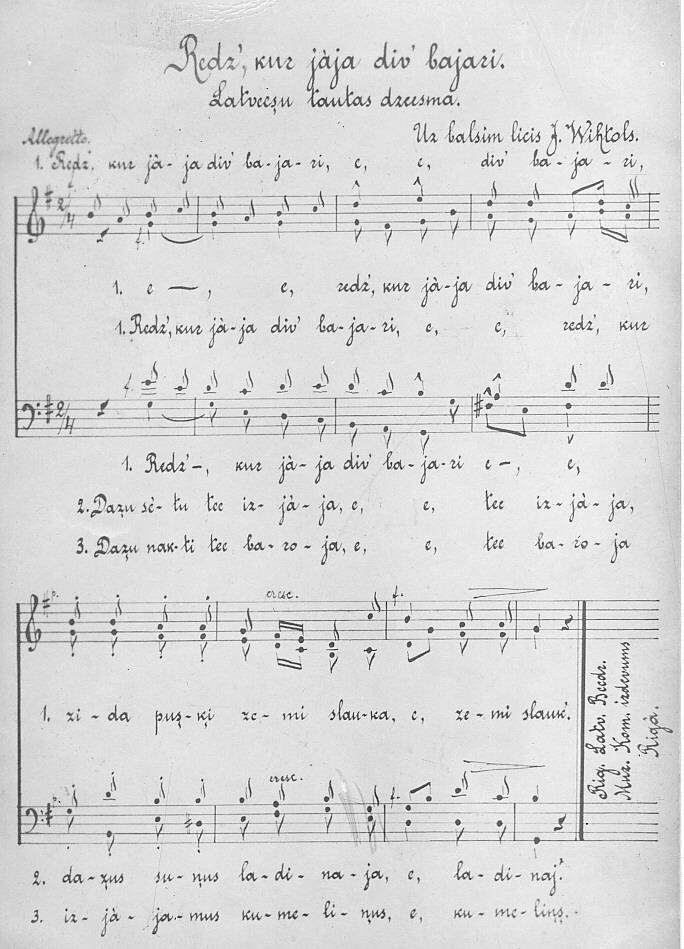 Redz', kur jàja div' bajari.
Latveeşu tautas dzeesma.
Allegretto.
Uz balsim licis J. Wihtols.
1. Redz', kur jà-ja div' ba-ja-ri, e, e, div' ba-ja-ri,
2/4
f.
1. e —, e, redz', kur jà-ja div' ba-ja-ri,
1. Redz', kur jà-ja div' ba-ja-ri, e, e, redz', kur
f.
2/4
1. Redz'-, kur jà-ja div' ba-ja-ri e-, e,
2. Dazu sè-tu tee iz-jà-ja, e, e, tee iz-jà-ja,
3. Dazu nak-ti tee ba-ro-ja, e, e, tee ba-ro-ja
p. cresc. f.
1. zi-da puş-ķi ze-mi slau-ka, e, ze-mi slauk'.
Rig. Latv. Beedr.
Muz. Kom. izdevums
Rigà.
p. cresc. f.
2. da-zus su-ņus la-di-na-ja, e, la-di-naj'.
3. iz-jà-ja-mus ku-me-li-ņus, e, ku-me-liņş.